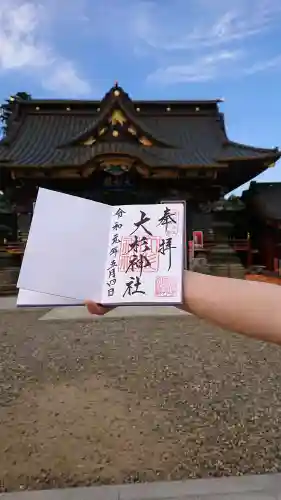 奉拝
大杉神社
令和元年五月四日